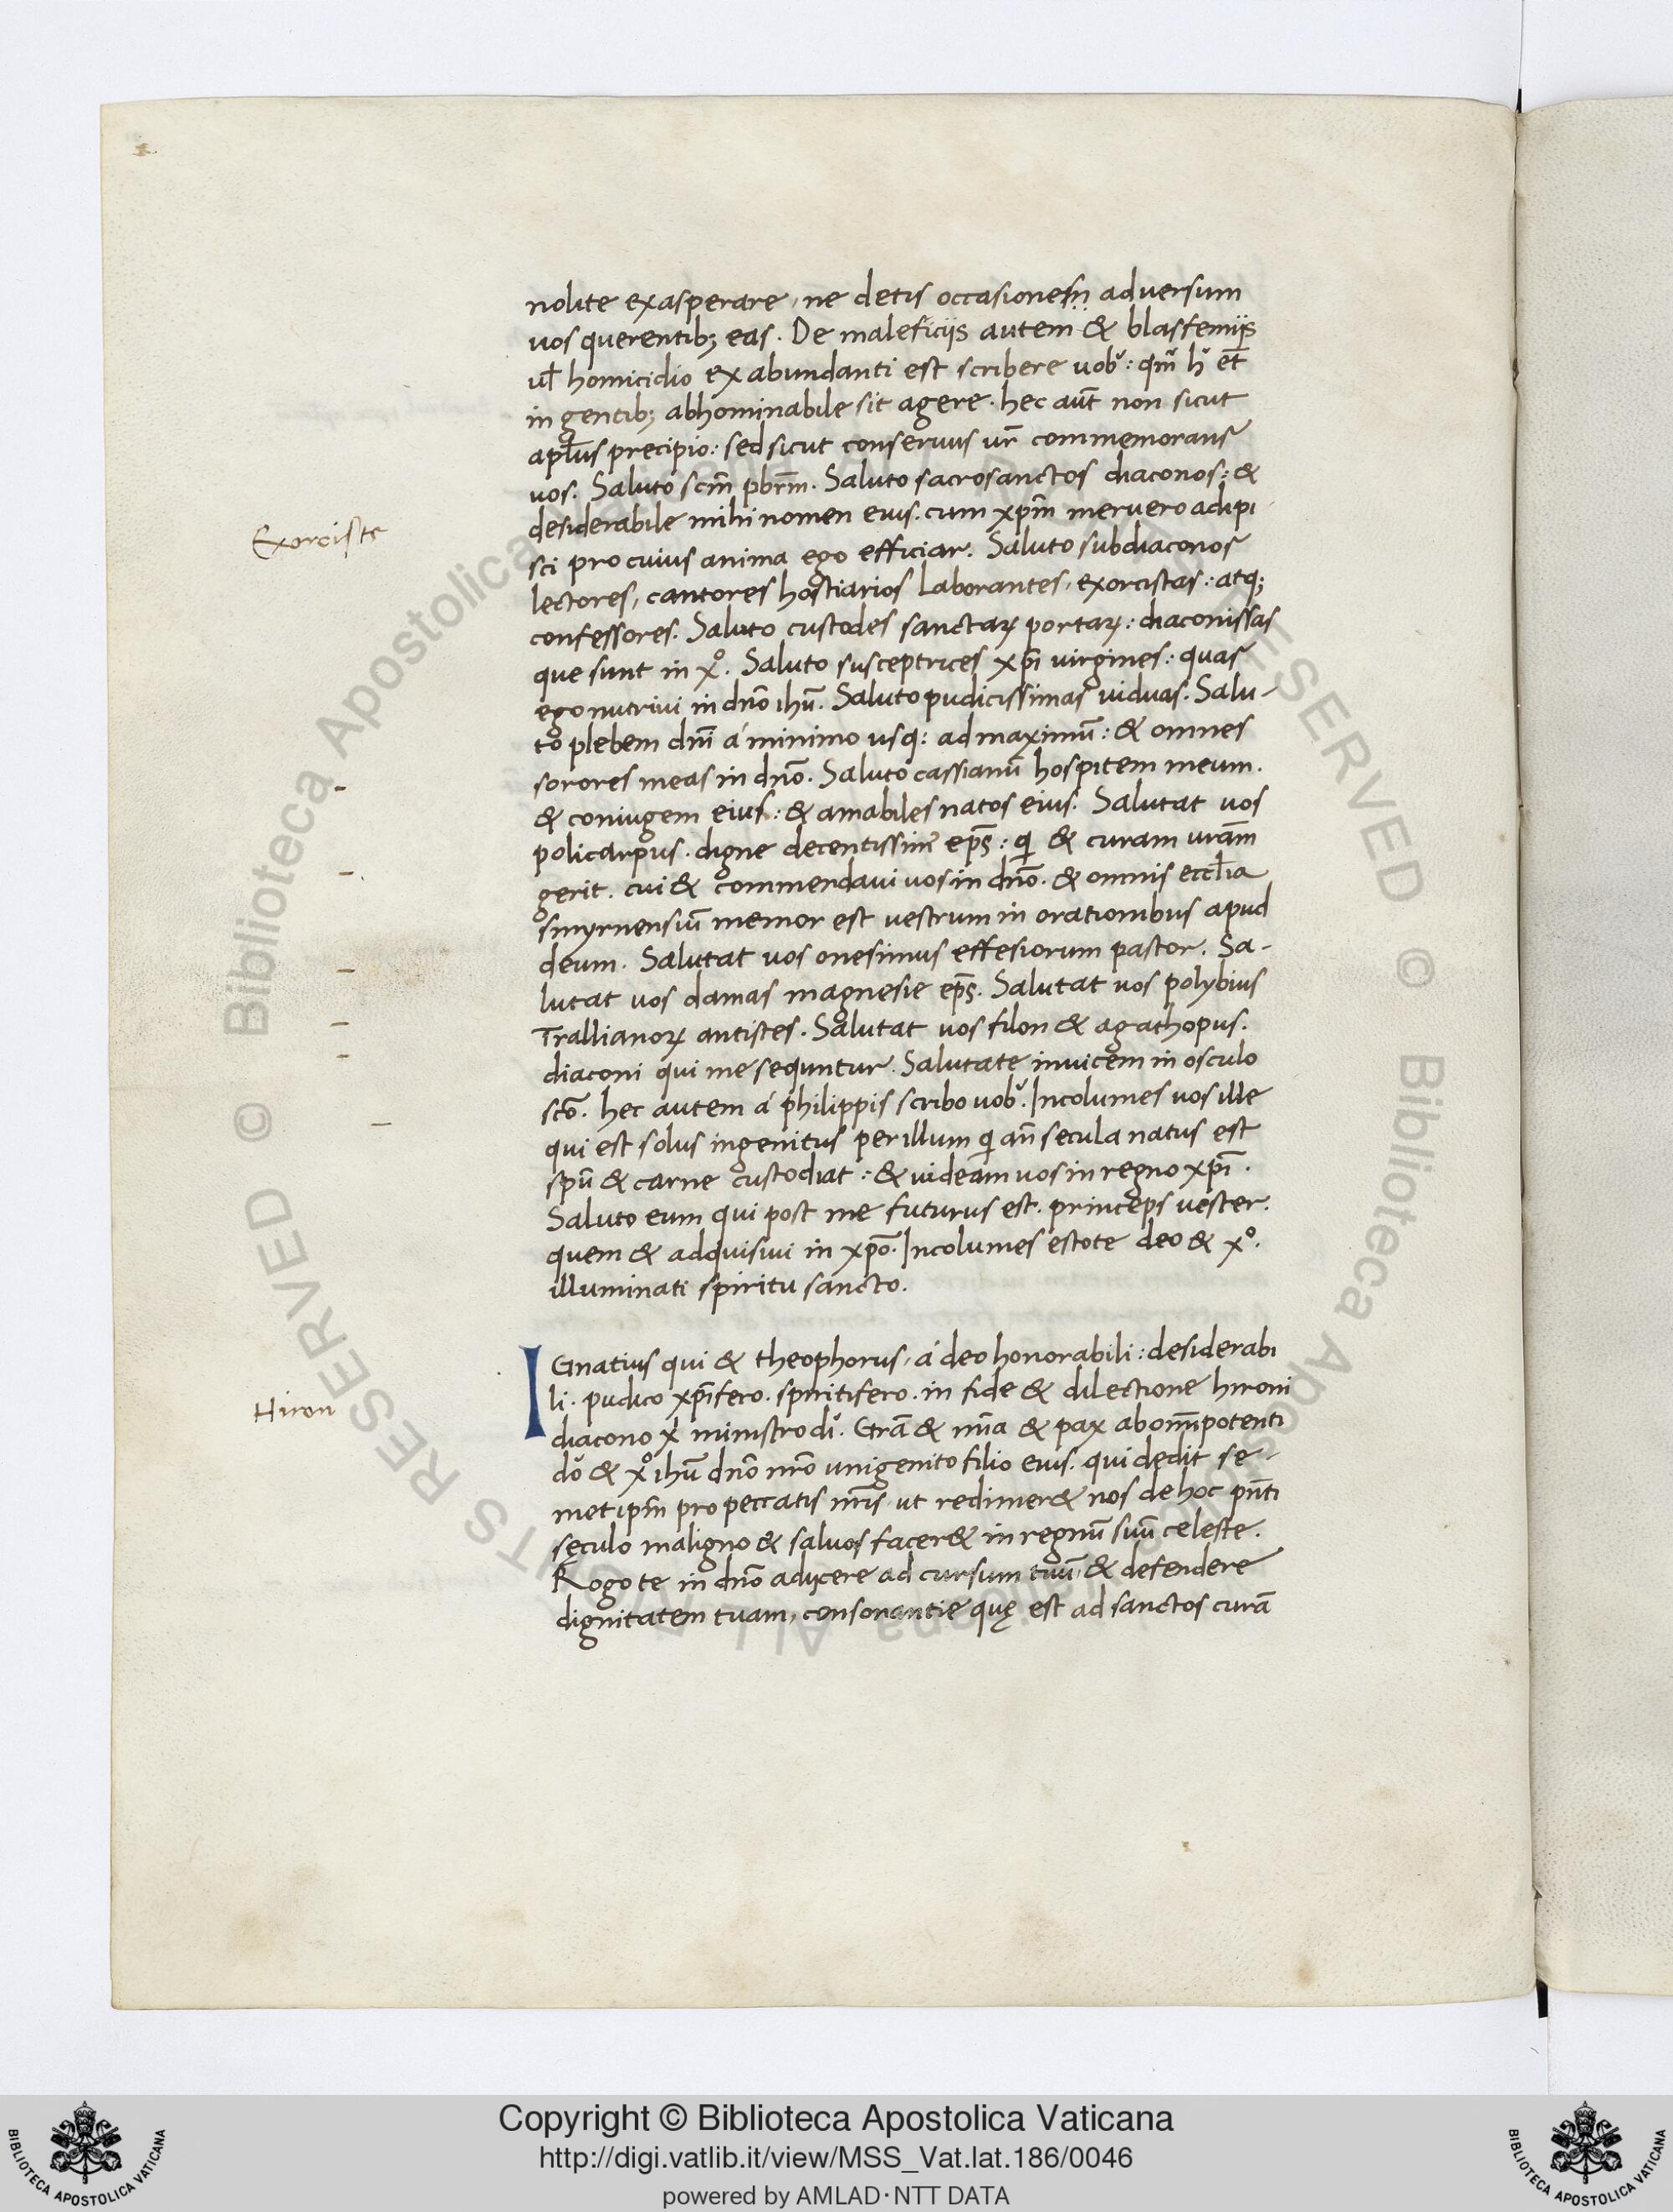 nolite exasperare, ne detis occasionem adversum
uos querentib; eas. De maleficiis autem & blasfemiis
ul̄ homicidio ex abundanti est scribere uob᷎: qm̄ h᷎ et̄
in gentib; abhominabile sit agere. hec aūt non sicut
apl̄us precipio: sed sicut conservus ur̄ commemorans
uos. Saluto scm̄ pbrm̄. Saluto sacrosanctos diaconos: &
desiderabile mihi nomen eius. cum xpm̄ meruero adipi
Exorciste
sci pro cuius anima ego efficiar. Saluto subdiaconos
lectores, cantores hostiarios laborantes, exorcistas: atq;
confessores. Saluto custodes sanctaꝝ portaꝝ: diaconissas
que sunt in xº. Saluto susceptrices xpī virgines: quas
ego nutrivi in dnō ihū. Saluto pudicissimas uiduas. Salu-
to plebem dnī á minimo usq: ad maximū: & omnes
sorores meas in dnō. Saluto cassianū hospitem meum.
& coniugem eius: & amabiles natos eius. Salutat uos
policarpus. digne decentissim᷎ ep̄s: q̇ & curam urām
gerit. cui & commendaui uos in dnō. & omnis eccl̄ia
smyrnensiū memor est uestrum in orationibus apud
deum. Salutat uos onesimus effesiorum pastor. Sa-
lutat uos damas magnesie ep̄s. Salutat uos polybius
Trallianoꝝ antistes. Salutat uos filon & agathopus.
diaconi qui me sequntur. Salutate invicem in osculo
scō. hec autem á philippis scribo uob᷎. Incolumes uos ille
qui est solus ingenitus per illum q̇ an̄ secula natus est
spū & carne custodiat: & uideam uos in regno xpī.
Saluto eum qui post me futurus est. princeps uester.
quem & adquisiui in xpō. Incolumes estote deo & xº.
illuminati spiritu sancto.
IGnatius qui & theophorus, á deo honorabili: desiderabi
li. pudico xpīfero. spiritifero. in fide & dilectione hironi
Hiron
diacono x᷎ ministro di᷎. Grā & mīa & pax ab omīpotenti
dō & xº ihū dnō nrō unigenito filio eius. qui dedit se-
met ipm̄ pro peccatis nrīs ut redimer& nos de hoc pn̄ti
sęculo maligno & saluos facer& in regnū suū celeste.
Rogo te in dnō adiicere ad cursum tuū, & defendere
dignitatem tuam, consonantie quę est ad sanctos curā
Copyright © Biblioteca Apostolica Vaticana
http://digi.vatlib.it/view/MSS_Vat.lat.186/0046
powered by AMLAD·NTT DATA